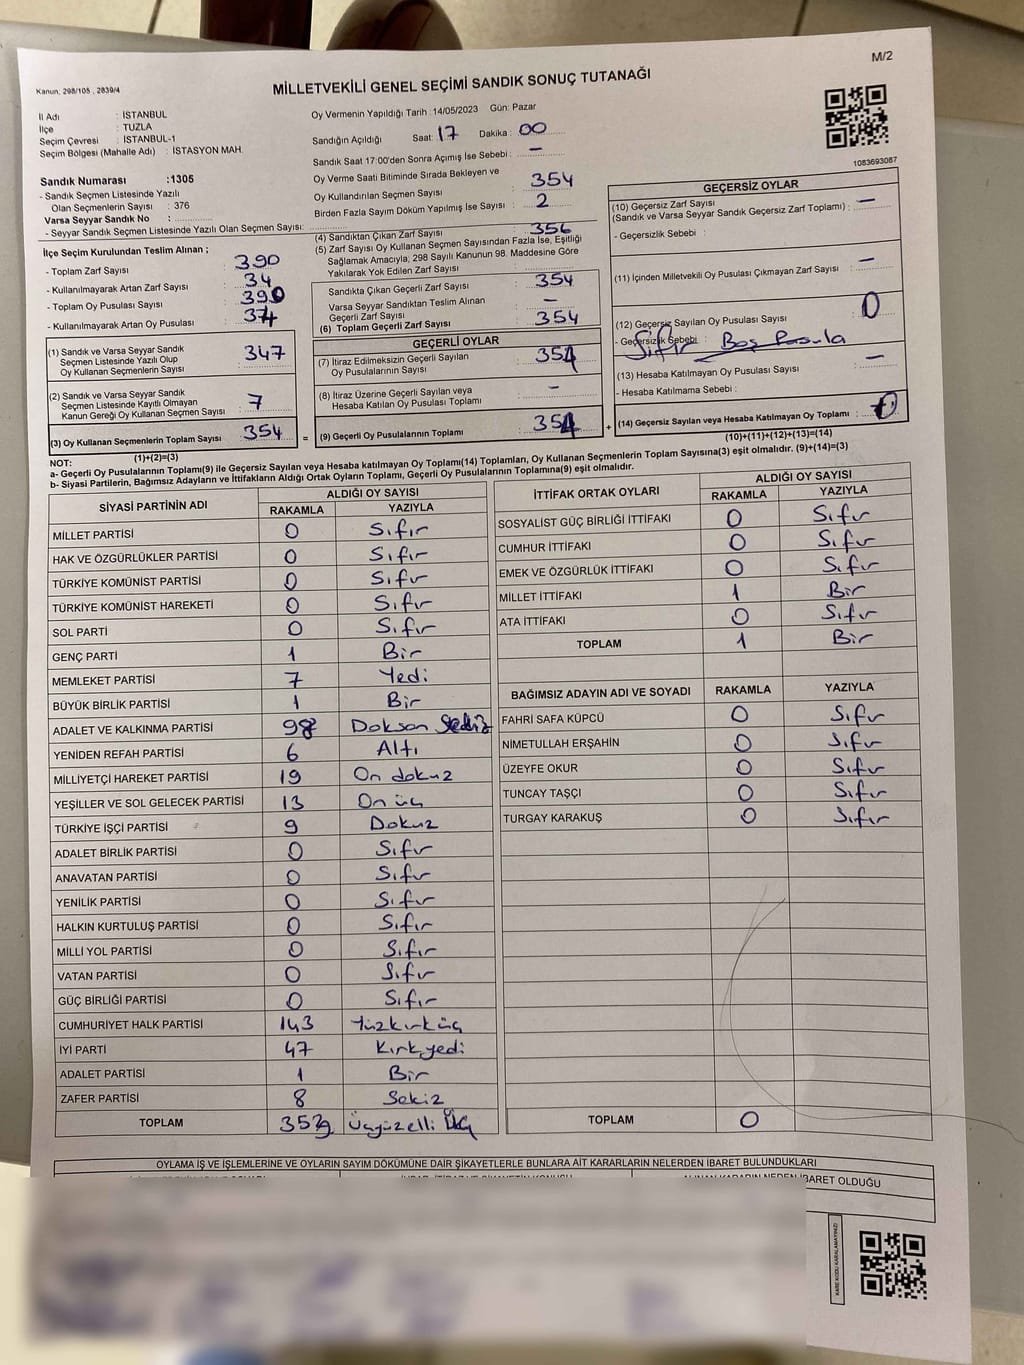 M/2
Kanun; 298/105 , 2839/4
MİLLETVEKİLİ GENEL SEÇİMİ SANDIK SONUÇ TUTANAĞI
İl Adı : İSTANBUL
İlçe : TUZLA
Seçim Çevresi : İSTANBUL-1
Seçim Bölgesi (Mahalle Adı) : İSTASYON MAH.
Sandık Numarası :1305
- Sandık Seçmen Listesinde Yazılı
Olan Seçmenlerin Sayısı : 376
Varsa Seyyar Sandık No :
- Seyyar Sandık Seçmen Listesinde Yazılı Olan Seçmen Sayısı:
İlçe Seçim Kurulundan Teslim Alınan ;
- Toplam Zarf Sayısı : 390
- Kullanılmayarak Artan Zarf Sayısı : 34
- Toplam Oy Pusulası Sayısı : 390
- Kullanılmayarak Artan Oy Pusulası : 34
(1) Sandık ve Varsa Seyyar Sandık
Seçmen Listesinde Yazılı Olup
Oy Kullanan Seçmenlerin Sayısı : 347
(2) Sandık ve Varsa Seyyar Sandık
Seçmen Listesinde Kayıtlı Olmayan
Kanun Gereği Oy Kullanan Seçmen Sayısı : 7
(3) Oy Kullanan Seçmenlerin Toplam Sayısı : 354
(1)+(2)=(3)
Oy Vermenin Yapıldığı Tarih : 14/05/2023 Gün: Pazar
Sandığın Açıldığı Saat: 17 Dakika : 00
Sandık Saat 17:00'den Sonra Açımış İse Sebebi : —
Oy Verme Saati Bitiminde Sırada Bekleyen ve
Oy Kullandırılan Seçmen Sayısı : 354
Birden Fazla Sayım Döküm Yapılmış İse Sayısı : 2
(4) Sandıktan Çıkan Zarf Sayısı : 356
(5) Zarf Sayısı Oy Kullanan Seçmen Sayısından Fazla İse, Eşitliği
Sağlamak Amacıyla, 298 Sayılı Kanunun 98. Maddesine Göre
Yakılarak Yok Edilen Zarf Sayısı :
Sandıkta Çıkan Geçerli Zarf Sayısı : 354
Varsa Seyyar Sandıktan Teslim Alınan
Geçerli Zarf Sayısı : —
(6) Toplam Geçerli Zarf Sayısı : 354
GEÇERLİ OYLAR
(7) İtiraz Edilmeksizin Geçerli Sayılan
Oy Pusulalarının Sayısı : 354
(8) İtiraz Üzerine Geçerli Sayılan veya
Hesaba Katılan Oy Pusulası Toplamı : —
= (9) Geçerli Oy Pusulalarının Toplamı : 354 +
1083693087
GEÇERSİZ OYLAR
(10) Geçersiz Zarf Sayısı
(Sandık ve Varsa Seyyar Sandık Geçersiz Zarf Toplamı) : —
- Geçersizlik Sebebi :
(11) İçinden Milletvekili Oy Pusulası Çıkmayan Zarf Sayısı : —
(12) Geçersiz Sayılan Oy Pusulası Sayısı : 0
- Geçersizlik Sebebi : Sıfır Boş Pusula
(13) Hesaba Katılmayan Oy Pusulası Sayısı : —
- Hesaba Katılmama Sebebi :
(14) Geçersiz Sayılan veya Hesaba Katılmayan Oy Toplamı : 0
(10)+(11)+(12)+(13)=(14)
NOT:
a- Geçerli Oy Pusulalarının Toplamı(9) ile Geçersiz Sayılan veya Hesaba katılmayan Oy Toplamı(14) Toplamları, Oy Kullanan Seçmenlerin Toplam Sayısına(3) eşit olmalıdır. (9)+(14)=(3)
b- Siyasi Partilerin, Bağımsız Adayların ve İttifakların Aldığı Ortak Oyların Toplamı, Geçerli Oy Pusulalarının Toplamına(9) eşit olmalıdır.
SİYASİ PARTİNİN ADI ALDIĞI OY SAYISI
RAKAMLA YAZIYLA
MİLLET PARTİSİ 0 Sıfır
HAK VE ÖZGÜRLÜKLER PARTİSİ 0 Sıfır
TÜRKİYE KOMÜNİST PARTİSİ 0 Sıfır
TÜRKİYE KOMÜNİST HAREKETİ 0 Sıfır
SOL PARTİ 0 Sıfır
GENÇ PARTİ 1 Bir
MEMLEKET PARTİSİ 7 Yedi
BÜYÜK BİRLİK PARTİSİ 1 Bir
ADALET VE KALKINMA PARTİSİ 98 Doksan Sekiz
YENİDEN REFAH PARTİSİ 6 Altı
MİLLİYETÇİ HAREKET PARTİSİ 19 On dokuz
YEŞİLLER VE SOL GELECEK PARTİSİ 13 On üç
TÜRKİYE İŞÇİ PARTİSİ 9 Dokuz
ADALET BİRLİK PARTİSİ 0 Sıfır
ANAVATAN PARTİSİ 0 Sıfır
YENİLİK PARTİSİ 0 Sıfır
HALKIN KURTULUŞ PARTİSİ 0 Sıfır
MİLLİ YOL PARTİSİ 0 Sıfır
VATAN PARTİSİ 0 Sıfır
GÜÇ BİRLİĞİ PARTİSİ 0 Sıfır
CUMHURİYET HALK PARTİSİ 143 Yüzkırküç
İYİ PARTİ 47 Kırkyedi
ADALET PARTİSİ 1 Bir
ZAFER PARTİSİ 8 Sekiz
TOPLAM 353 Üçyüzelli Üç
İTTİFAK ORTAK OYLARI ALDIĞI OY SAYISI
RAKAMLA YAZIYLA
SOSYALİST GÜÇ BİRLİĞİ İTTİFAKI 0 Sıfır
CUMHUR İTTİFAKI 0 Sıfır
EMEK VE ÖZGÜRLÜK İTTİFAKI 0 Sıfır
MİLLET İTTİFAKI 1 Bir
ATA İTTİFAKI 0 Sıfır
TOPLAM 1 Bir
BAĞIMSIZ ADAYIN ADI VE SOYADI RAKAMLA YAZIYLA
FAHRİ SAFA KÜPCÜ 0 Sıfır
NİMETULLAH ERŞAHİN 0 Sıfır
ÜZEYFE OKUR 0 Sıfır
TUNCAY TAŞÇI 0 Sıfır
TURGAY KARAKUŞ 0 Sıfır
TOPLAM 0
OYLAMA İŞ VE İŞLEMLERİNE VE OYLARIN SAYIM DÖKÜMÜNE DAİR ŞİKAYETLERLE BUNLARA AİT KARARLARIN NELERDEN İBARET BULUNDUKLARI
ALINAN KARARIN NEDEN İBARET OLDUĞU
KARE KODU KARALAMAYINIZ!